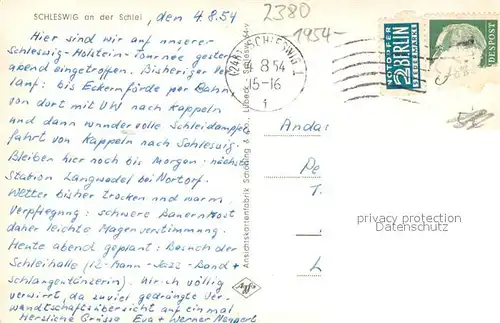 SCHLESWIG an der Schlei, den 4.8.54
Hier sind wir auf unserer
Schleswig-Holstein-Tournée gestern
abend eingetroffen. Bisheriger Ver-
lauf: bis Eckernförde per Bahn,
von dort mit UW nach Kappeln
und dann wundervolle Schleidampfer-
fahrt von Kappeln nach Schleswig.
Bleiben hier noch bis morgen. nächste
Station Langwedel bei Nortorf.
Wetter bisher trocken und warm
Verpflegung: schwere Bauernkost
daher leichte Magenverstimmung.
Heute abend geplant: Besuch der
Schleihalle (12-Mann-Jazz-Band +
Schlangentänzerin). Bin völlig
verwirrt, da zuviel gedrängte Ver-
wandtschaftsübersicht auf einmal
Herzliche Grüsse Eva + Werner
2380
1954-
(24b) SCHLESWIG 1
8.54
15-16
NOTOPFER
2 BERLIN
STEUERMARKE
DESPOST
Ansichtskartenfabrik Schöning & Co., Lübeck
Anda
Pe
T
L
privacy protection